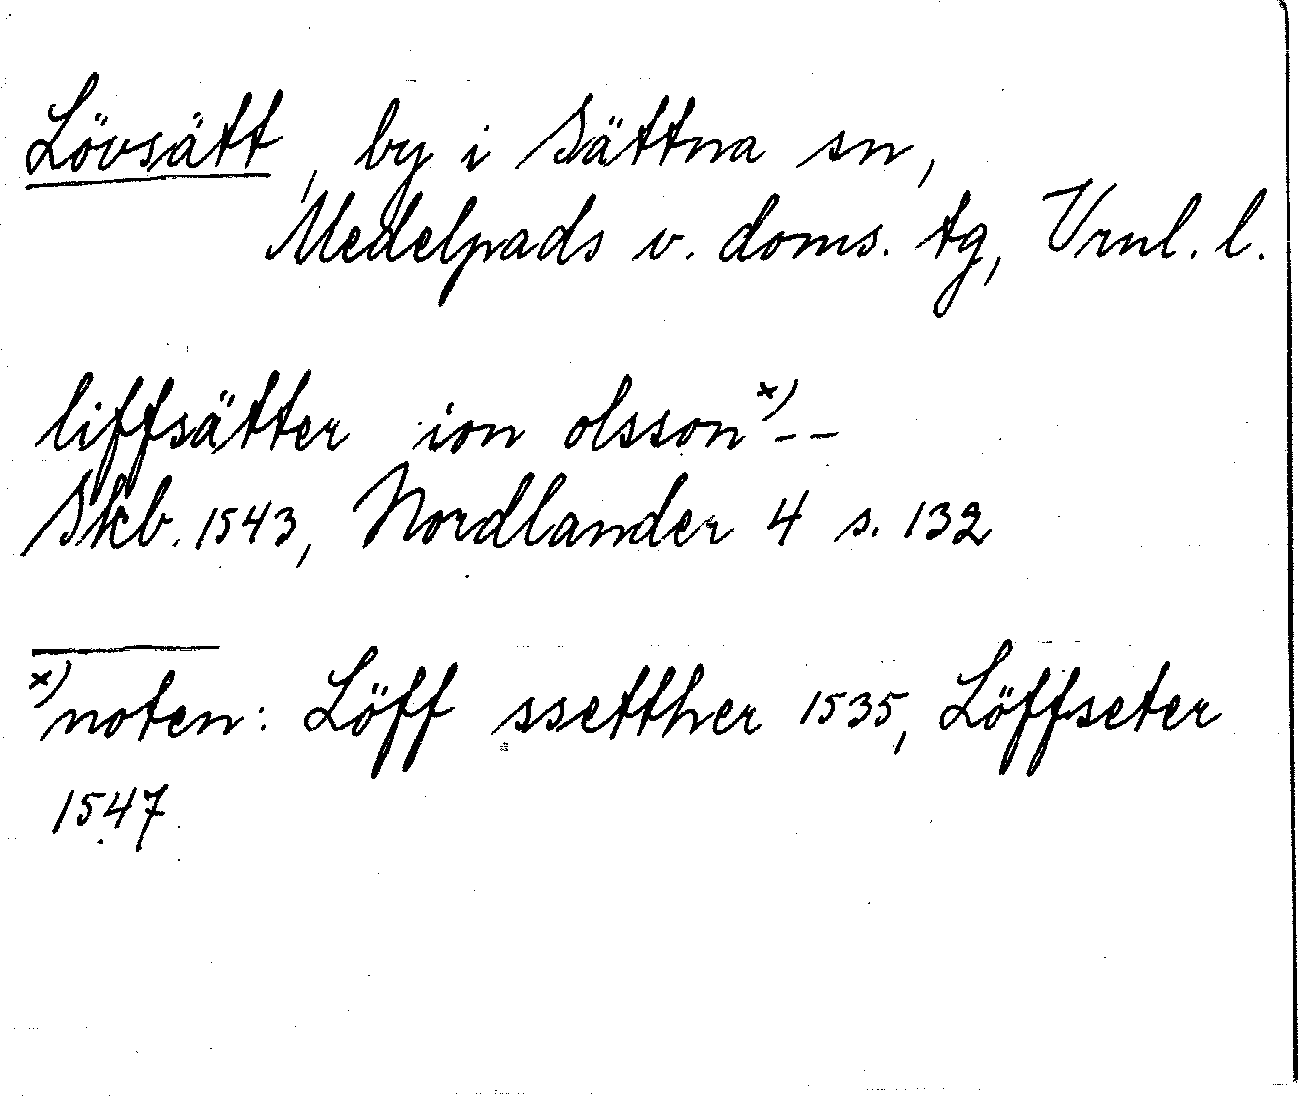 Lövsätt, by i Sättna sn,
Medelpads v. doms. tg, Vrnl. l.
liffsätter ion olsson x) --
Skb. 1543, Nordlander 4 s. 132
x) noten: Löff ssetther 1535, Löffseter
1547